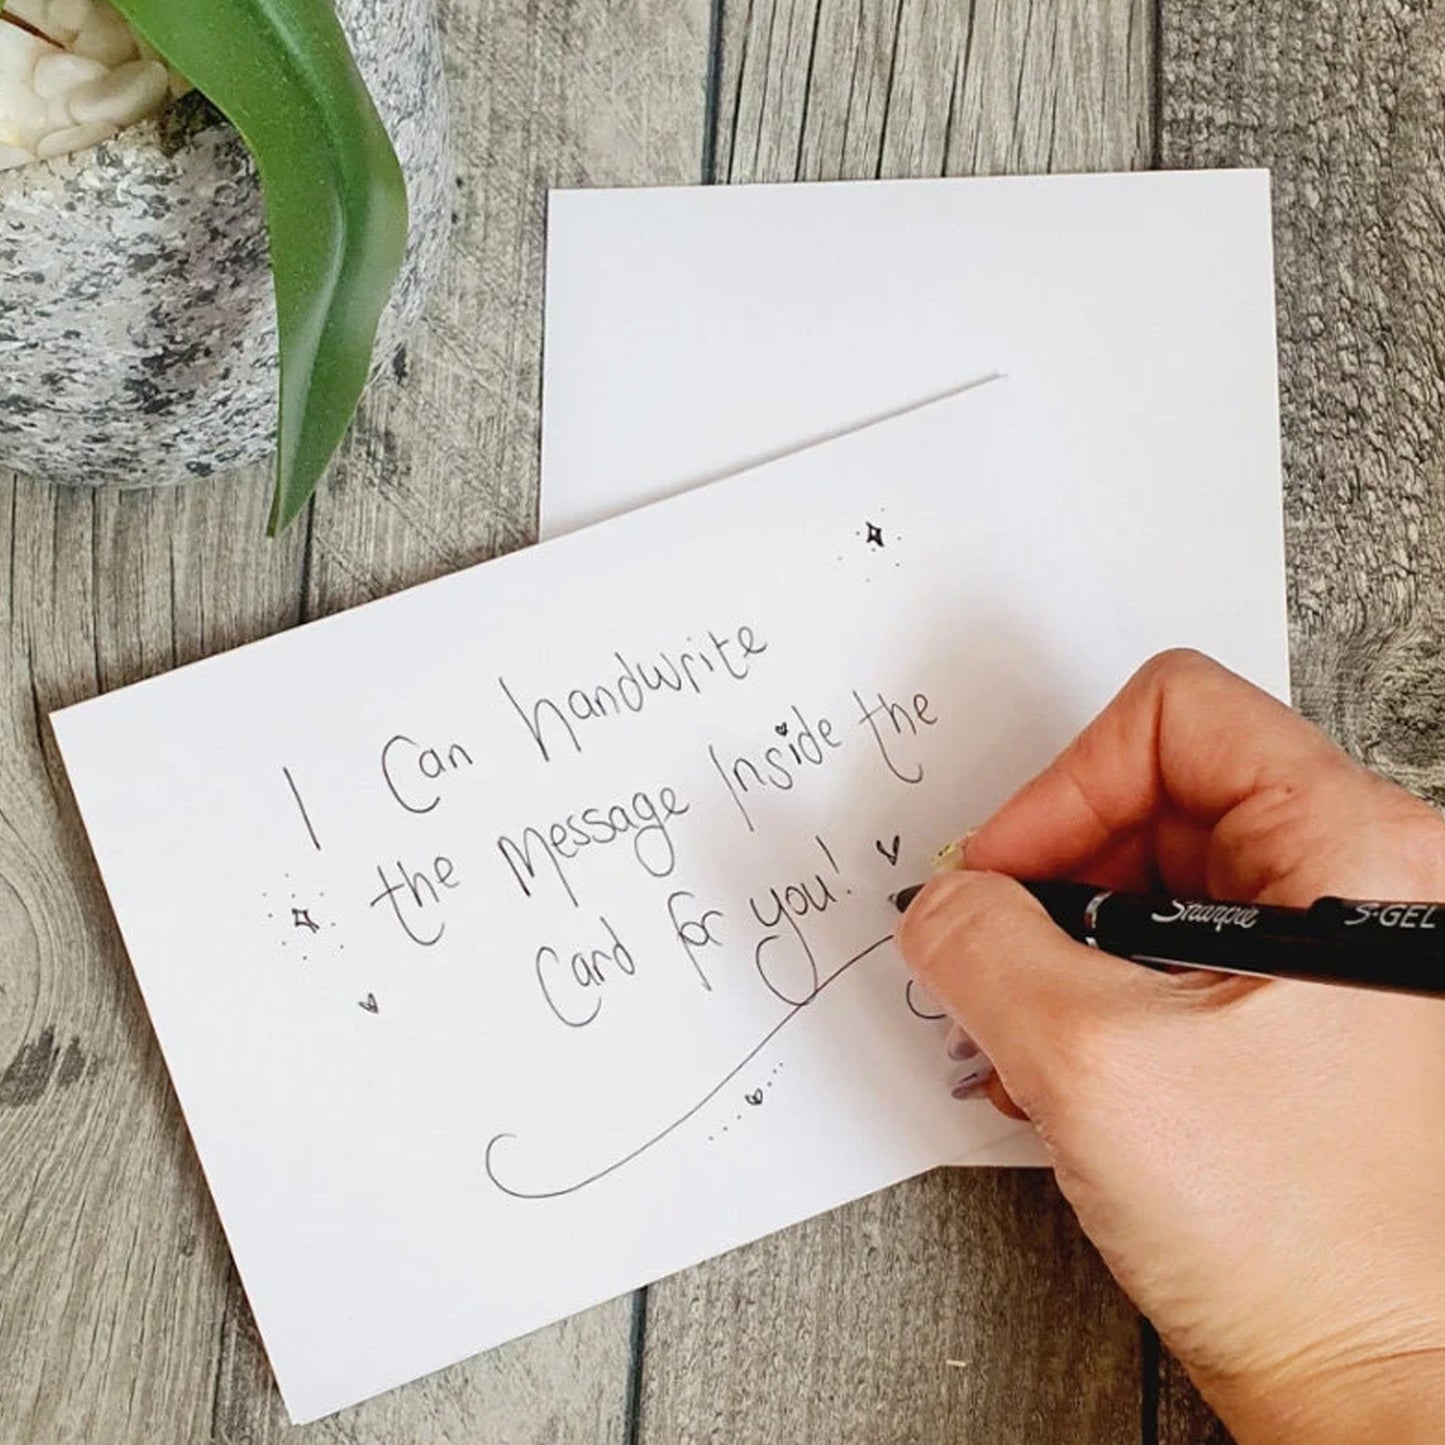 I Can handwrite
the Message Inside the
Card for you!
Sharpie S·GEL